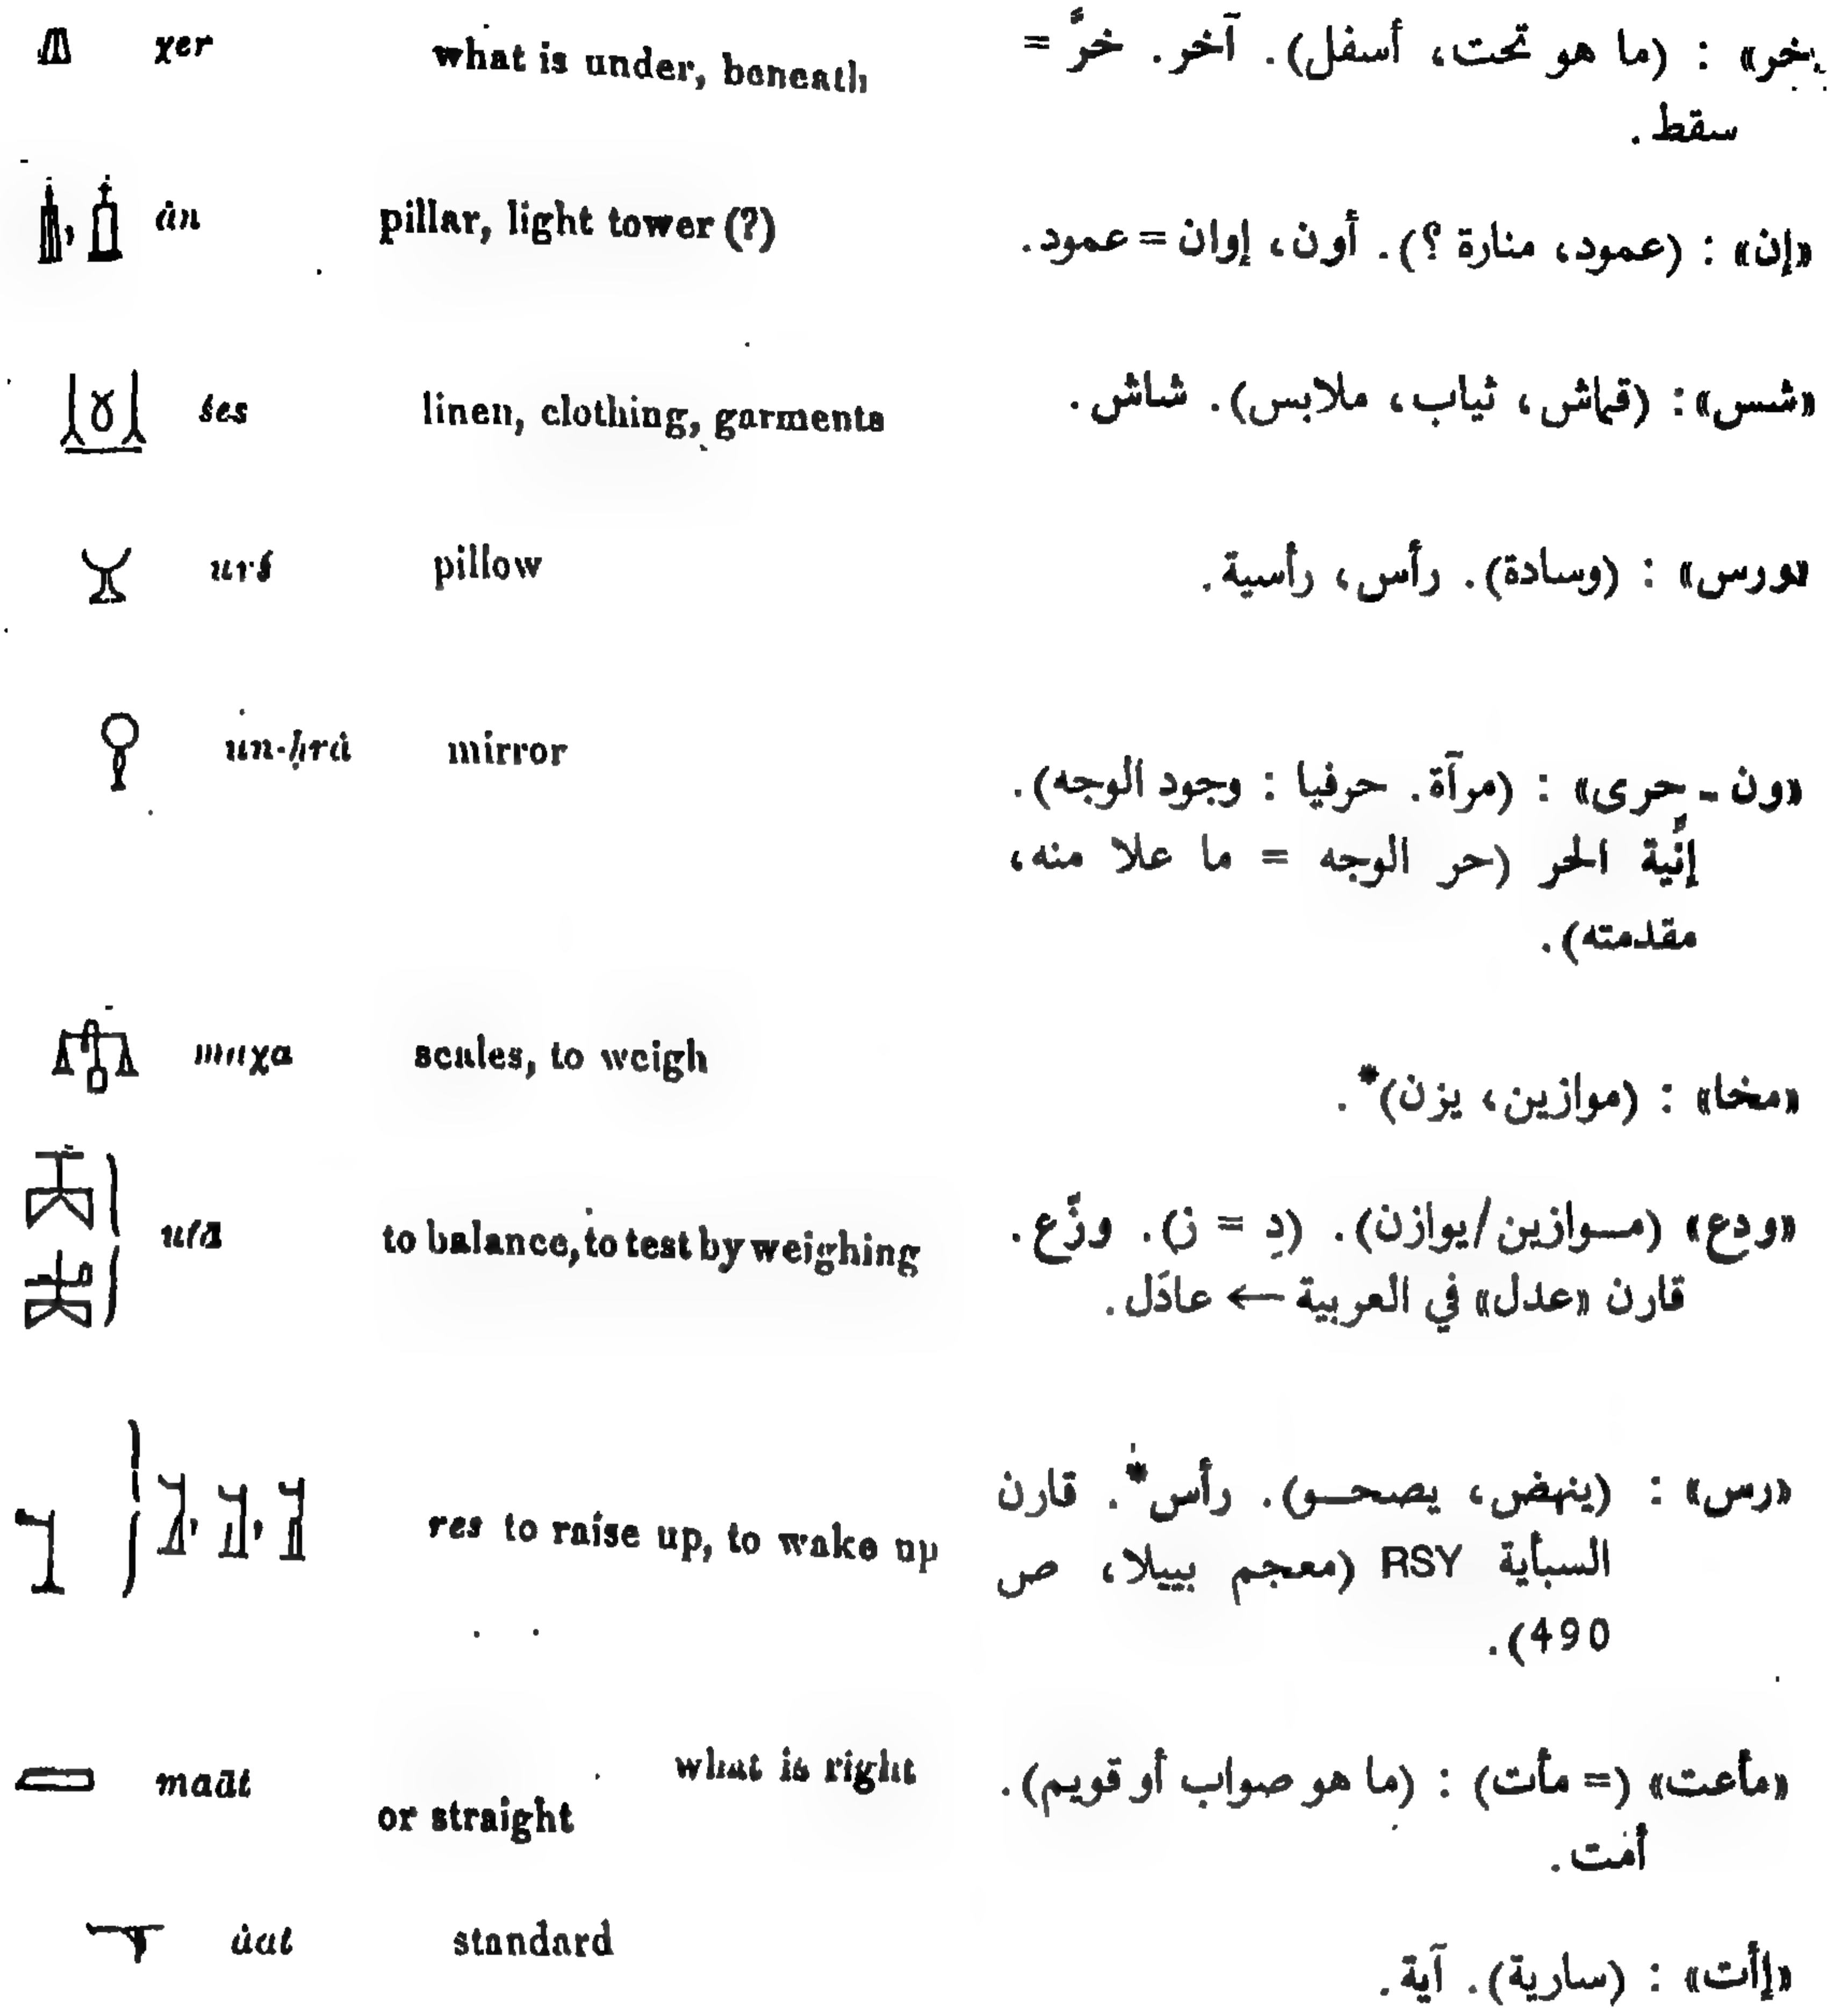 χer what is under, beneath «خر» : (ما هو تحت، أسفل). آخر. خرَّ =
سقط.
ȧn pillar, light tower (?) «إن» : (عمود، منارة ؟). أون، إوان = عمود.
śes linen, clothing, garments «شس» : (قماش، ثياب، ملابس). شاش.
urś pillow «ورس» : (وسادة). رأس، رأسية.
un-ḥrȧ mirror «ون - حرى» : (مرآة. حرفيا : وجود الوجه).
إنّية الحر (حر الوجه = ما علا منه،
مقدمته).
māχa scales, to weigh «مخا» : (موازين، يزن)*.
to balance, to test by weighing «ودع» (موازين/يوازن). (دِ = ز). وزَّع.
قارن «عدل» في العربية ← عادَل.
res to raise up, to wake up «رس» : (ينهض، يصحو). رأس*. قارن
السبأية RSY (معجم بييلا، ص
490).
maāt what is right «مأعت» (= مأت) : (ما هو صواب أو قويم).
or straight أمْت.
ȧat standard «إأت» : (سارية). آية.